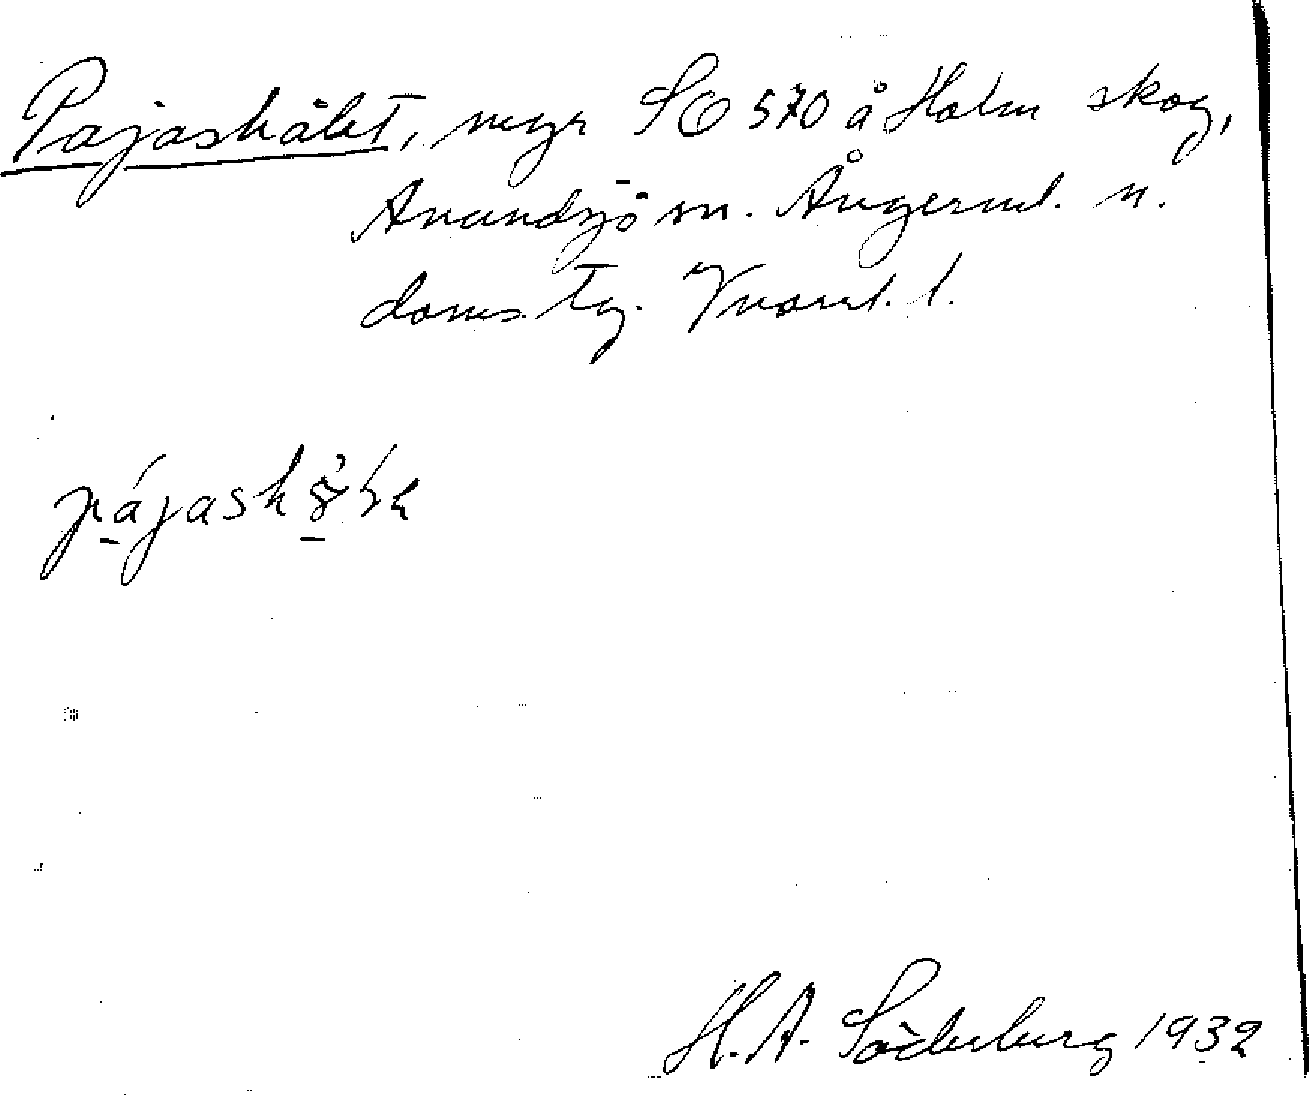 Pajashålet, myr SO 570 å Holm skog,
Anundsjö sn. Ångerml. n.
doms. tg. Vnorrl. l.
H. A. Söderberg 1932